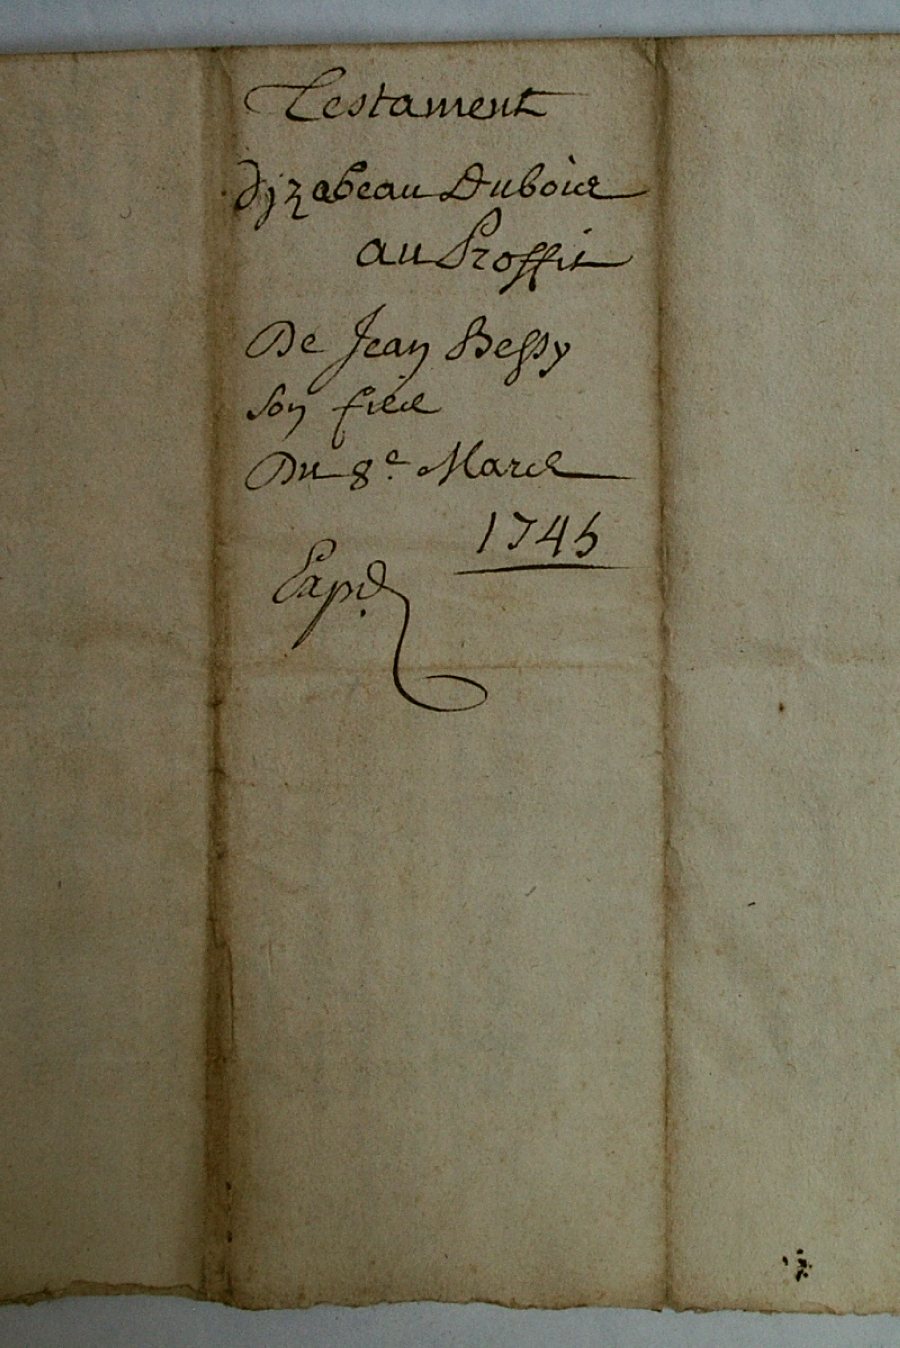 Testament
d'jzabeau Dubois
au Proffit
De Jean Bessy
Son fils
Du 8e. Mars
1745
Expd.